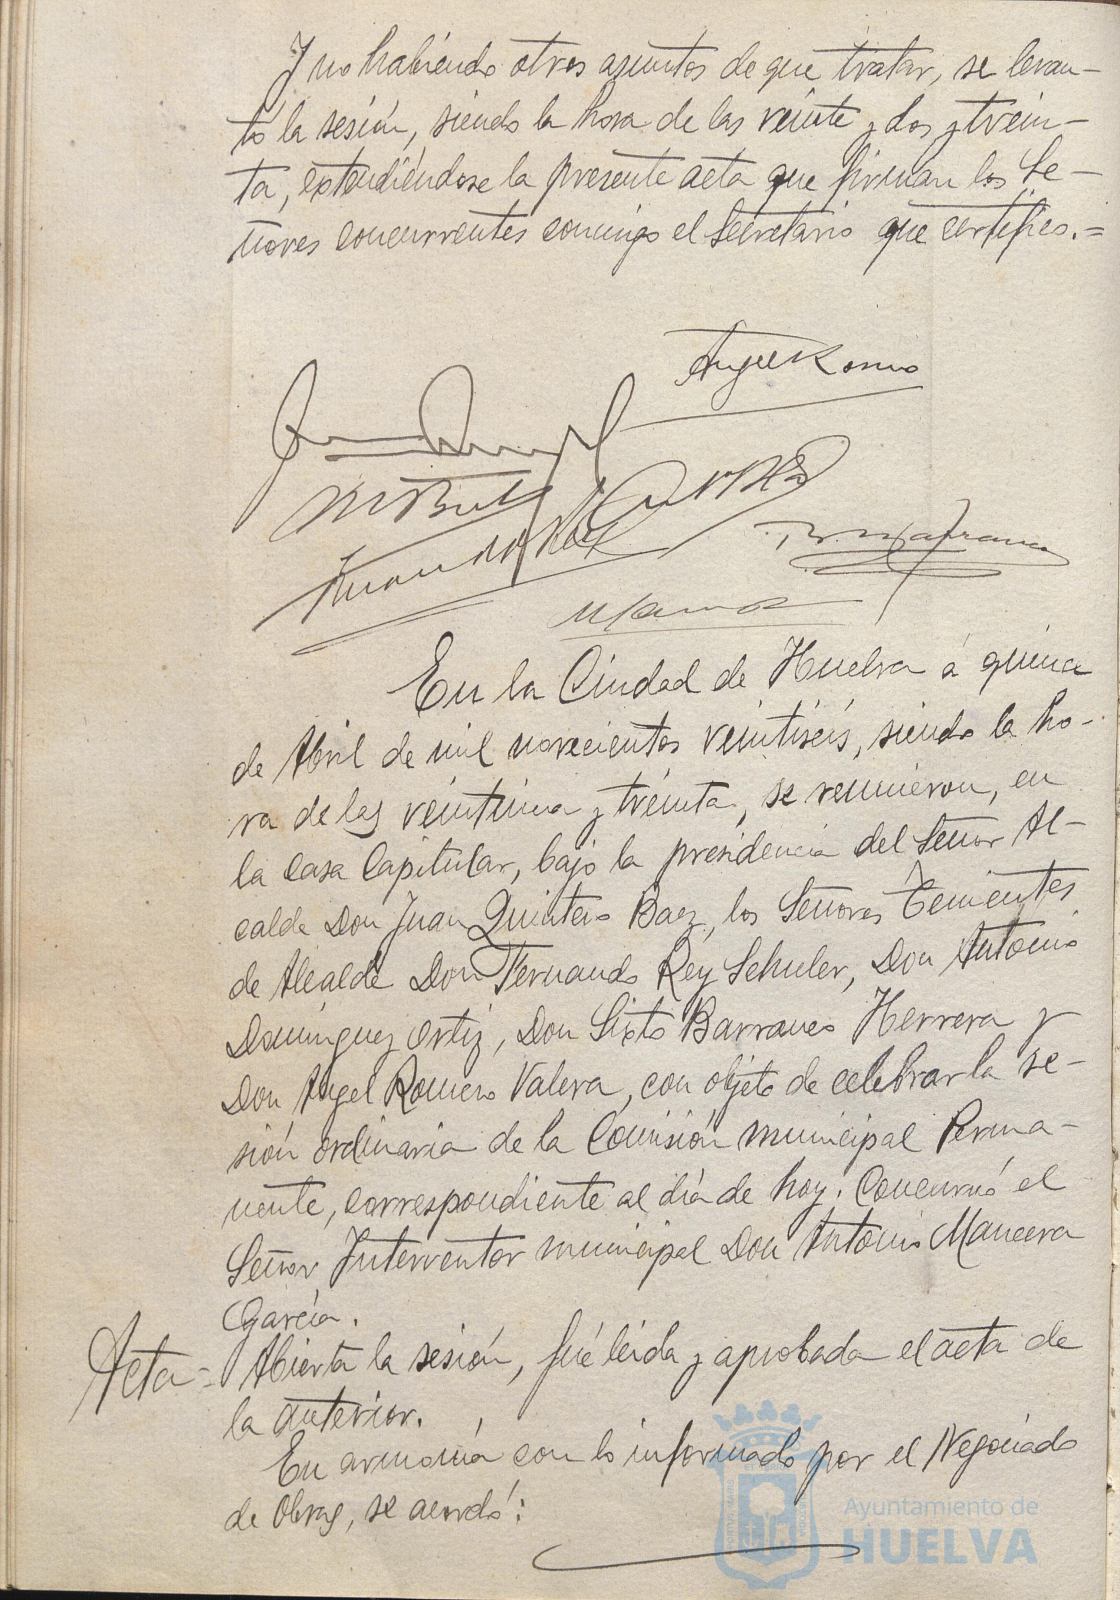 Y no habiendo otros asuntos de que tratar, se levan-
tó la sesión, siendo la hora de las veinte y dos y trein-
ta, extendiéndose la presente acta que firman los Se-
ñores concurrentes conmigo el Secretario que certifico.=
Angel Romero
En la Ciudad de Huelva á quince
de Abril de mil novecientos veintiséis, siendo la ho-
ra de las veintiuna y treinta, se reunieron, en
la Casa Capitular, bajo la presidencia del Señor Al-
calde Don Juan Quintero Baez, los Señores Tenientes
de Alcalde Don Fernando Rey Schuler, Don Antonio
Domínguez Ortiz, Don Sixto Barranco Herrera y
Don Angel Romero Valera, con objeto de celebrar la se-
sión ordinaria de la Comisión municipal Perma-
nente, correspondiente al día de hoy. Concurrió el
Señor Interventor municipal Don Antonio Mancera
García.
Acta = Abierta la sesión, fué leída y aprobada el acta de
la anterior.
En armonía con lo informado por el Negociado
de Obras, se acordó:
Ayuntamiento de
HUELVA